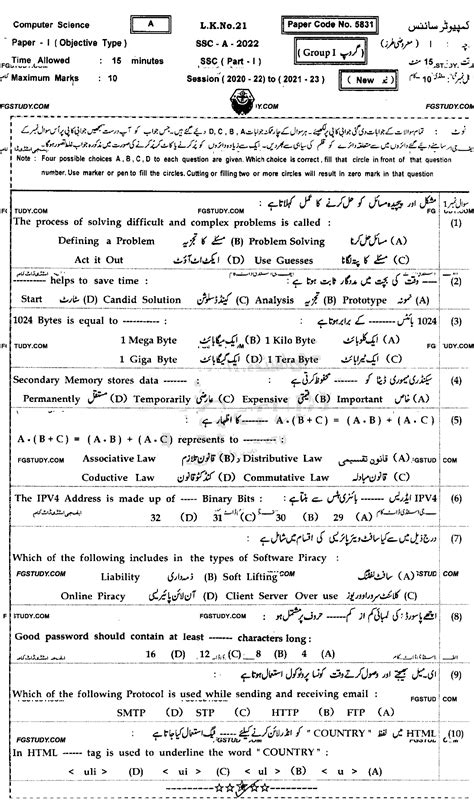 Computer Science A L.K.No.21 Paper Code No. 5831 کمپیوٹر سائنس
Paper - I ( Objective Type ) SSC - A - 2022 ( Group I گروپ ) پرچہ : I ( معروضی طرز )
Time Allowed : 15 minutes SSC ( Part - I ) وقت : 15 منٹ
Maximum Marks : 10 Session ( 2020 - 22) to ( 2021 - 23 ) ( New نیو ) کل نمبر : 10
FGSTUDY.COM FGSTUDY.COM
Note : Four possible choices A , B , C , D to each question are given. Which choice is correct , fill that circle in front of that question
number. Use marker or pen to fill the circles. Cutting or filling two or more circles will result in zero mark in that question.
مشکل اور پیچیدہ مسائل کو حل کرنے کا عمل کہلاتا ہے : سوال نمبر 1
The process of solving difficult and complex problems is called : (1)
Defining a Problem مسئلے کا تجزیہ (B) Problem Solving مسائل حل کرنا (A)
Act it Out ایکٹ اٹ آؤٹ (D) Use Guesses (C)
------- وقت کی بچت میں مددگار ثابت ہوتا ہے : (2)
---------- helps to save time :
Start سٹارٹ (D) Candid Solution کینڈڈ سلوشن (C) Analysis تجزیہ (B) Prototype نمونہ (A)
1024 Bytes is equal to ----------- : 1024 بائٹس ------- کے برابر ہوتا ہے : (3)
1 Mega Byte ایک میگا بائٹ (B) 1 Kilo Byte ایک کلو بائٹ (A)
1 Giga Byte ایک گیگا بائٹ (D) 1 Tera Byte ایک ٹیرا بائٹ (C)
Secondary Memory stores data ------- : سیکنڈری میموری ڈیٹا کو ------- محفوظ کرتی ہے : (4)
Permanently مستقل (D) Temporarily عارضی (C) Expensive قیمتی (B) Important خاص (A)
A . (B + C) = (A . B) + (A . C) ------- کا اظہار ہے : (5)
A . (B + C) = (A . B) + (A . C) represents to ---------- :
Associative Law قانون تلازم (B) Distributive Law قانون تقسیمی (A)
Coductive Law کنڈکٹو قانون (D) Commutative Law قانون مبادلہ (C)
The IPV4 Address is made up of ----- Binary Bits : IPV4 ایڈریس ------- بائنری بٹس سے بنتا ہے : (6)
32 (D) 31 (C) 30 (B) 29 (A)
درج ذیل میں سے کیا سافٹ ویئر پائریسی کی اقسام میں شامل ہے : (7)
Which of the following includes in the types of Software Piracy :
Liability ذمہ داری (B) Soft Lifting سافٹ لفٹنگ (A)
Online Piracy آن لائن پائریسی (D) Client Server Over use کلائنٹ سرور اوور یوز (C)
اچھے پاسورڈ کی لمبائی کم از کم ------- حروف پر مشتمل ہو : (8)
Good password should contain at least ------- characters long :
16 (D) 12 (C) 8 (B) 4 (A)
ای میل بھیجتے اور وصول کرتے وقت کونسا پروٹوکول استعمال ہوتا ہے : (9)
Which of the following Protocol is used while sending and receiving email :
SMTP (D) STP (C) HTTP (B) FTP (A)
HTML میں لفظ " COUNTRY " کو انڈر لائن کرنے کیلئے ------- ٹیگ استعمال کیا جاتا ہے : (10)
In HTML ------ tag is used to underline the word " COUNTRY " :
< uli > (D) < ui > (C) < ul > (B) < u > (A)